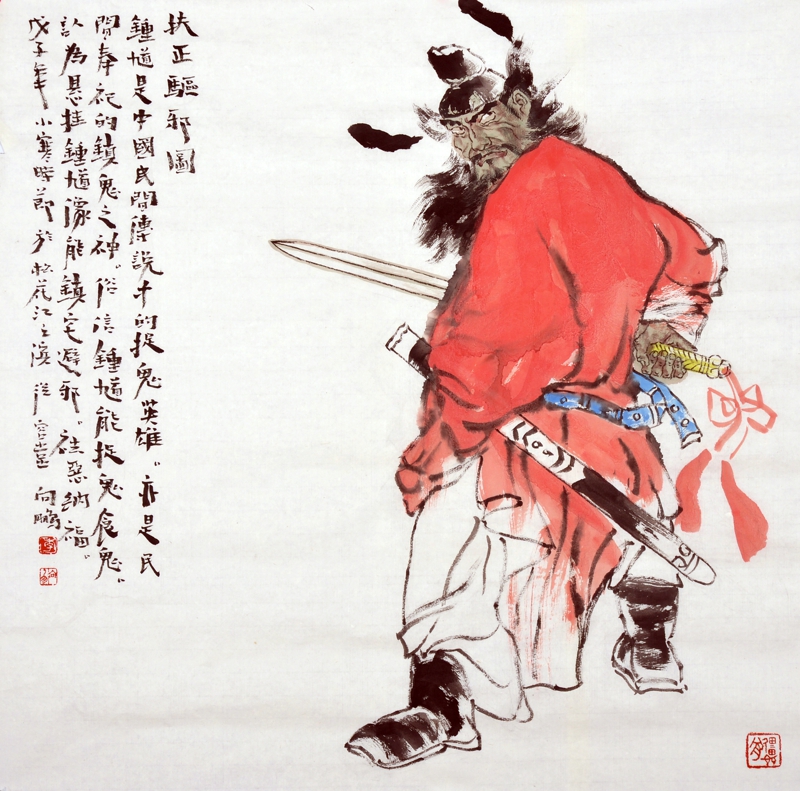 扶正驅邪圖
鍾馗是中國民間傳說中的捉鬼英雄。亦是民
間奉祀的鎮鬼之神。俗信鍾馗能捉鬼食鬼。
認為懸挂鍾馗像能鎮宅避邪。祛惡納福。
戊子年小寒時節於松花江之濱 向鵬